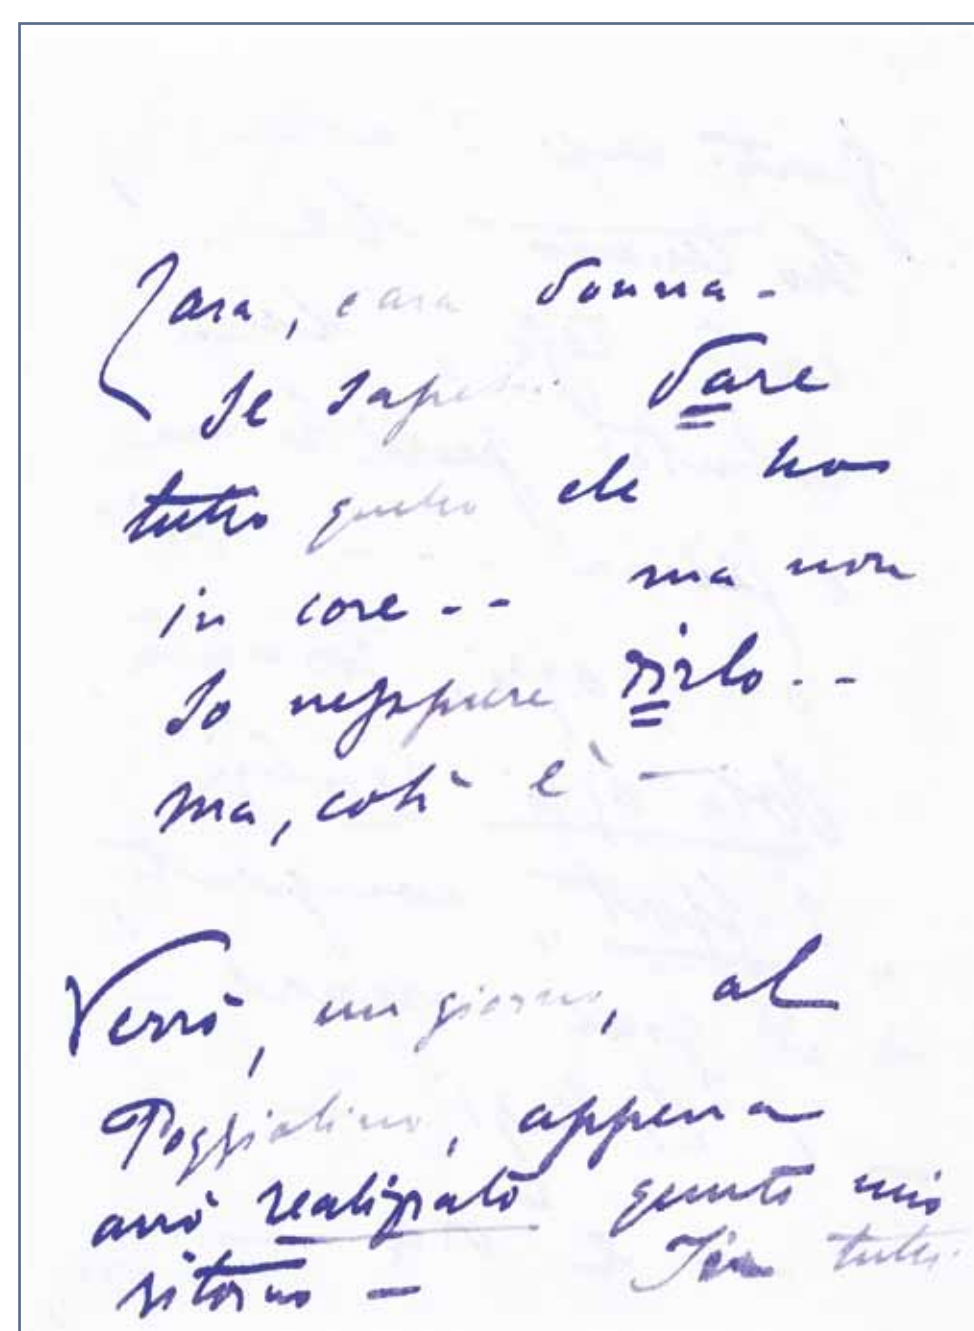 Cara, cara donna -
Se sapessi dare
tutto quello che ho
in core - - ma non
So neppure dirlo - -
Ma, così è —
Verrò, un giorno, al
Poggiolino, appena
avrò realizzato questo mio
ritorno —
tutto